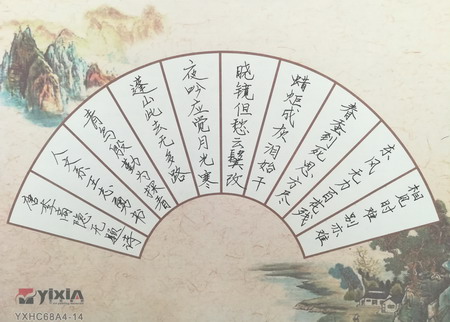 相見时难别亦难
东风无力百花残
春蚕到死思方尽
蜡炬成灰泪始干
晓镜但愁云鬓改
夜吟应觉月光寒
蓬山此去无多路
青鸟殷勤为探看
王志勇书
唐李商隐无题诗
YIXIA
YXHC68A4-14